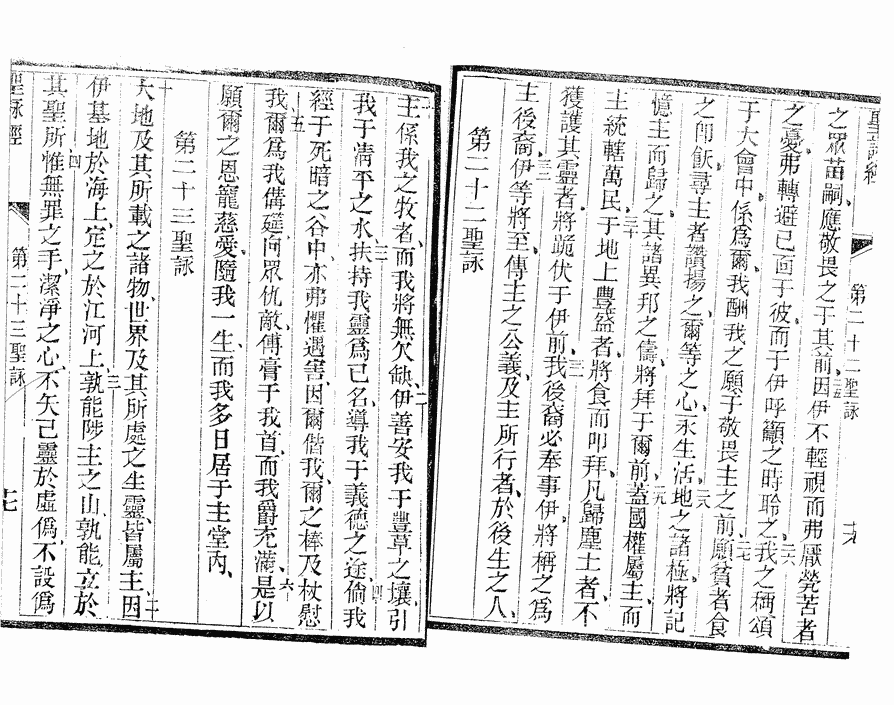 聖詠經
第二十二聖詠
之眾苗嗣、應敬畏之于其前、二五因伊不輕視而弗厭煢苦者
之憂、弗轉避己面于彼、而于伊呼籲之時聆之、二六我之稱頌
于大會中、係為爾、我酬我之願于敬畏主之前、二七願貧者食
之即飫、尋主者讚揚之、爾等之心、永生活、二八地之諸極、將記
憶主而歸之、其諸異邦之儔、將拜于爾前、二九蓋國權屬主、而
主統轄萬民、三十于地上豐盈者、將食而叩拜、凡歸塵土者、不
獲護其靈者、將跪伏于伊前、三一我後裔必奉事伊、將稱之為
主後裔、三二伊等將至、傳主之公義、及主所行者、於後生之人、
第二十二聖詠
一主係我之牧者、而我將無欠缺、二伊善安我于豐草之壤、引
我于清平之水、三扶持我靈、為己名、導我于義德之途、四倘我
經于死暗之谷中、亦弗懼遇害、因爾偕我、爾之棒及杖慰
我、五爾為我備筵、向眾仇敵、傅膏于我首、而我爵充滿、六是以
願爾之恩寵慈愛、隨我一生、而我多日居于主堂內、
第二十三聖詠
一大地及其所載之諸物、世界及其所處之生靈、皆屬主、二因
伊基地於海上、定之於江河上、三孰能陟主之山、孰能立於
其聖所、四惟無罪之手、潔淨之心、不矢己靈於虛偽、不設偽
聖詠經
第二十三聖詠